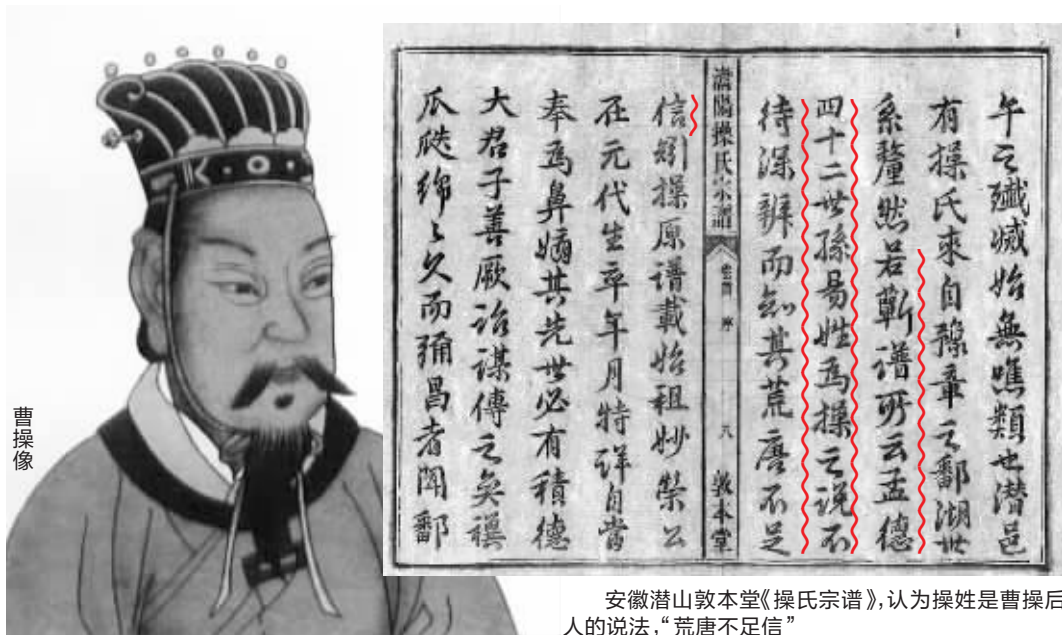 曹操像
午之殲滅始無噍類也潜邑
有操氏來自豫章之鄱湖世
系釐然若蘄谱所云孟德
四十二世孫易姓爲操之说不
待深辨而知其荒唐不足
灊陽操氏宗譜
序
八
敦本堂
信矧操原谱載始祖妙榮公
在元代生卒年月特详自當
奉爲鼻嫡其先世必有積德
大君子善厥诒谋傳之奕禩
瓜瓞绵〻久而彌昌者閒鄱
安徽潜山敦本堂《操氏宗谱》，认为操姓是曹操后
人的说法，“荒唐不足信”